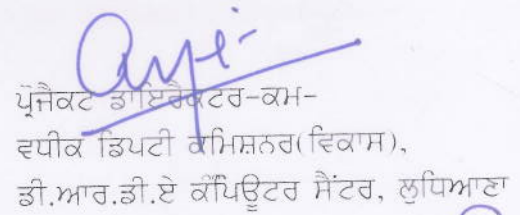 ਪ੍ਰੋਜੈਕਟ ਡਾਇਰੈਕਟਰ-ਕਮ-
ਵਧੀਕ ਡਿਪਟੀ ਕਮਿਸ਼ਨਰ(ਵਿਕਾਸ),
ਡੀ.ਆਰ.ਡੀ.ਏ ਕੰਪਿਊਟਰ ਸੈਂਟਰ, ਲੁਧਿਆਣਾ